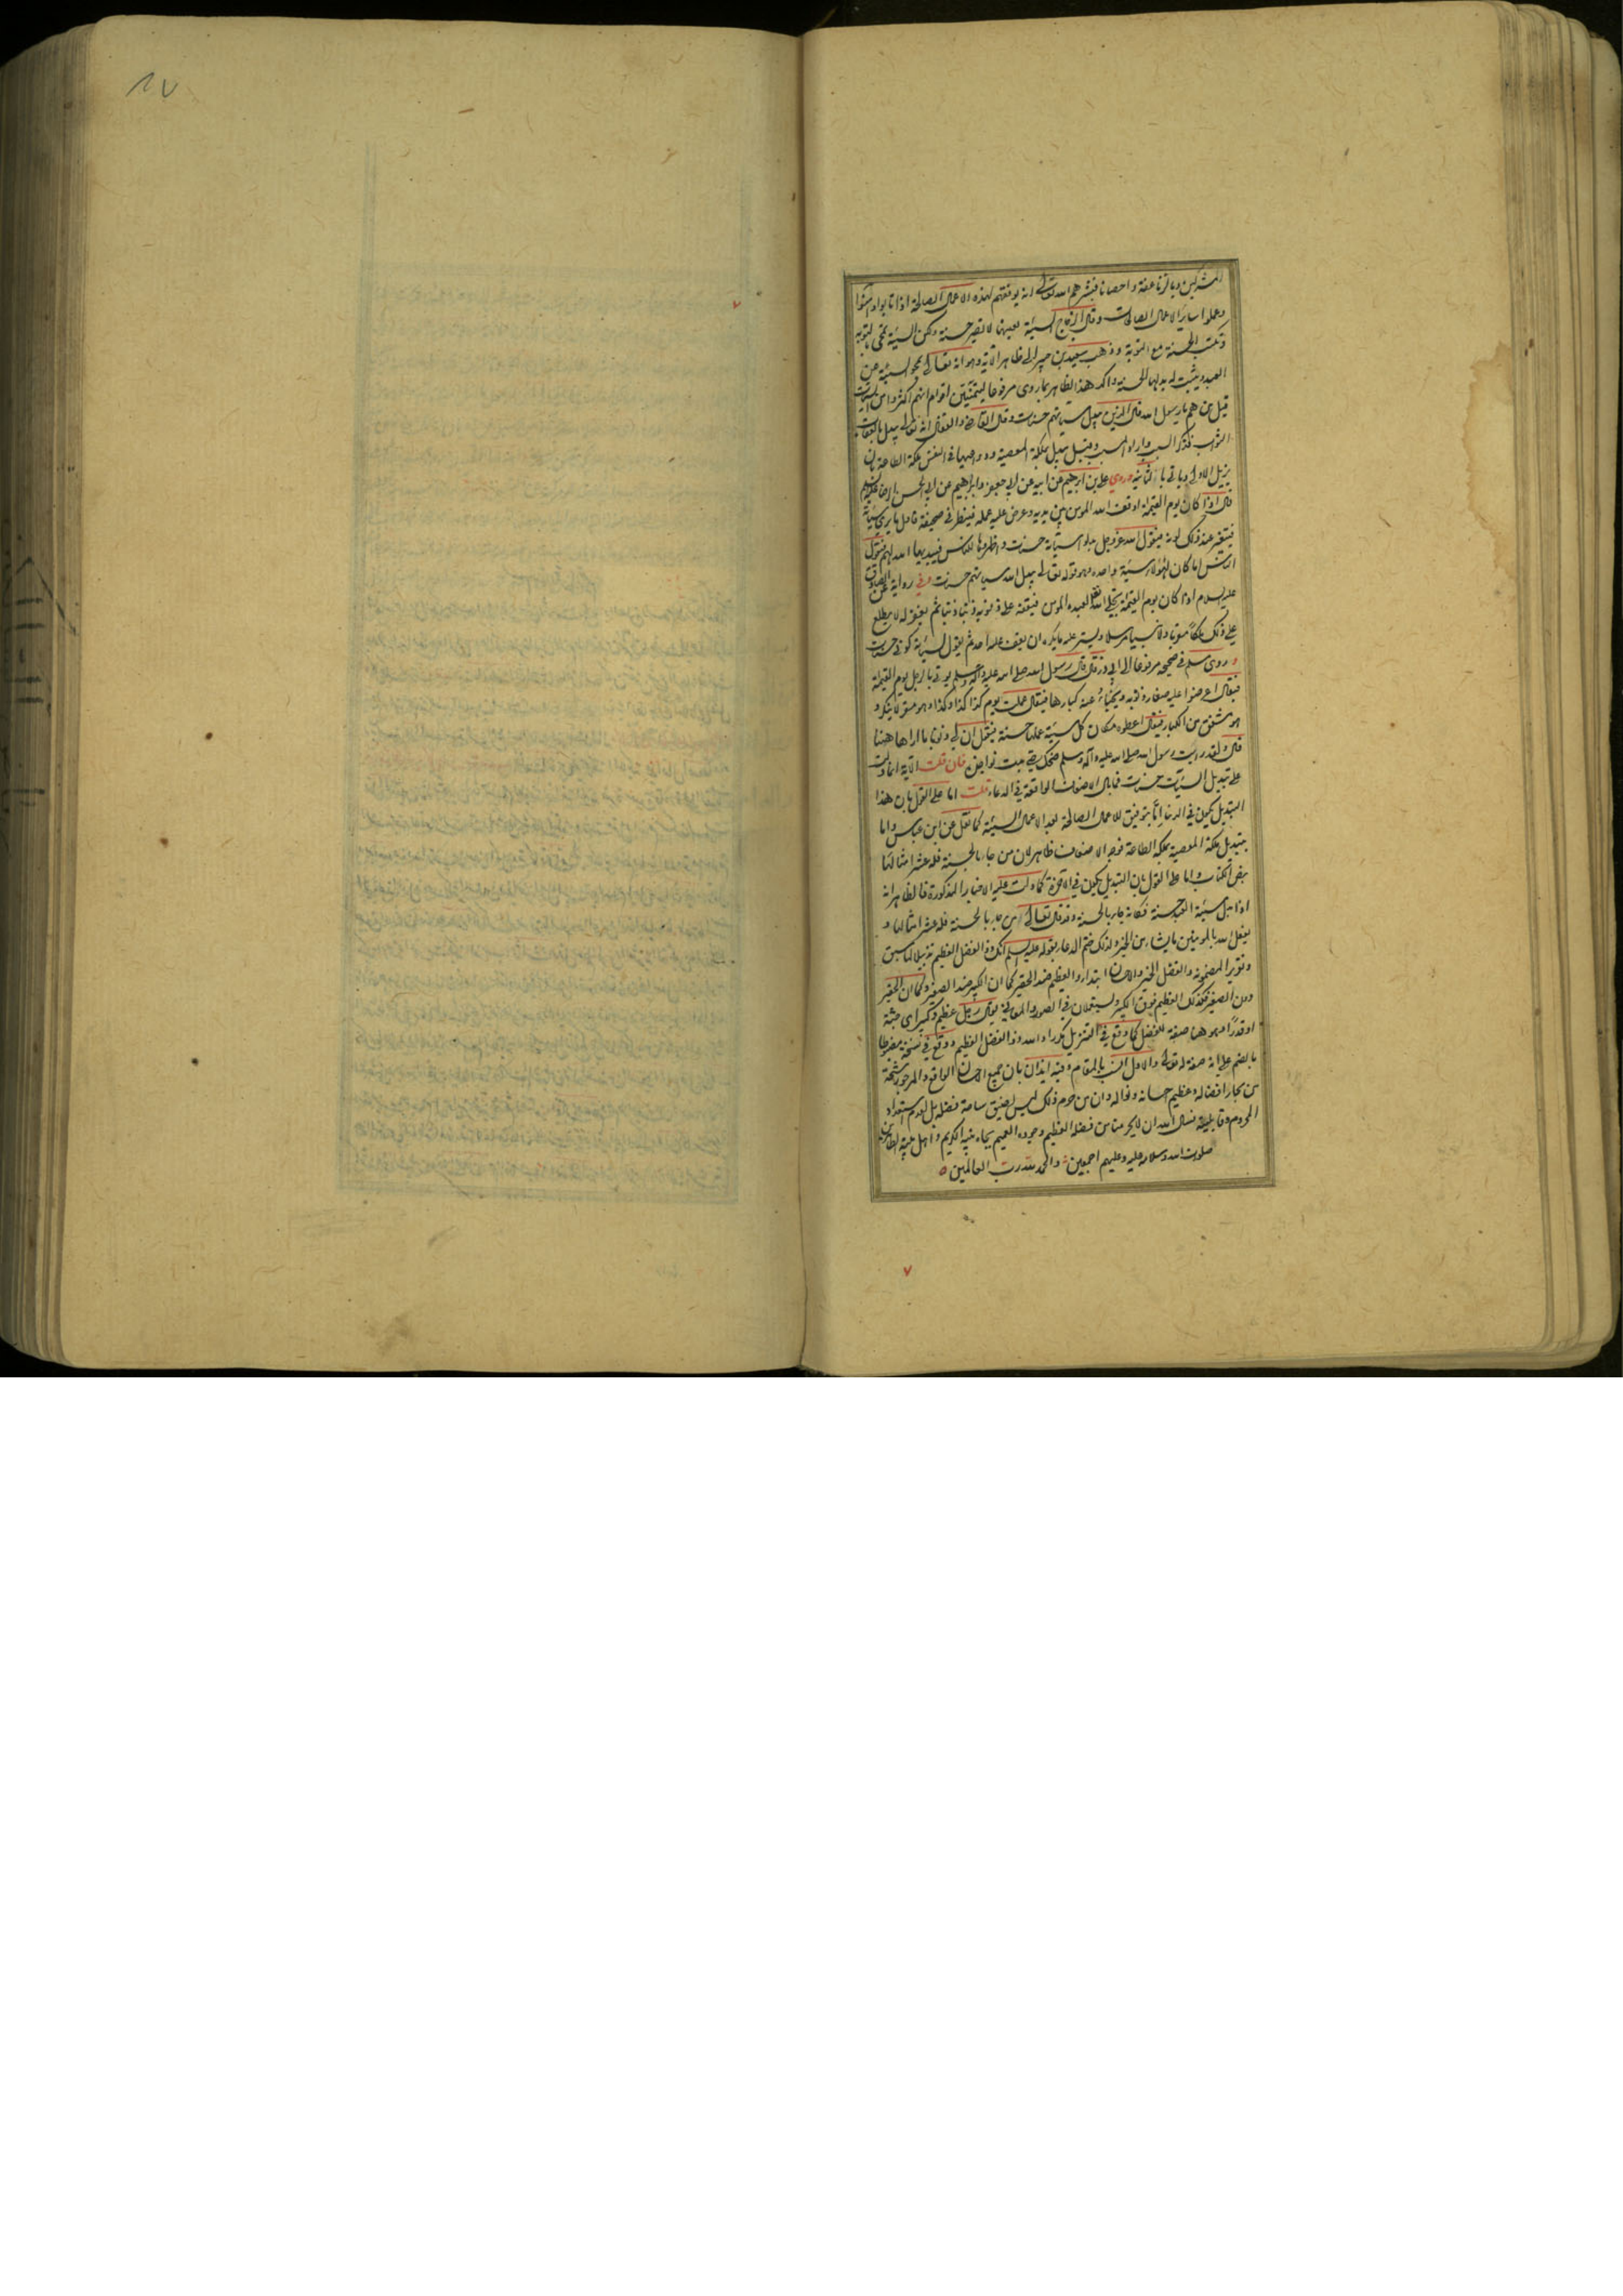 المشركين وبالزنا عفة واحصانا فبشرهم الله تعالى انه يوفقهم لهذه الاعمال الصالحة اذا تابوا وامنوا
وعملوا ساير الاعمال الصالحات وقال الزجاج السيئة بعينها لا تصير حسنة ولكن السيئة تمحى بالتوبة
وتكتب الحسنة مع التوبة وذهب سعيد بن جبير الى ظاهر الآية وهو انه تعالى يمحو السيئة عن
العبد ويثبت له بدلها الحسنة واكد هذا الظاهر بما روى مرفوعا ليتمنين اقوام انهم اكثروا من السيئات
قيل من هم يا رسول الله قال الذين يبدل الله سيئاتهم حسنات وقال القاضي والقفال انه تعالى يبدل بالعقاب
الثواب فذكر السبب واراد المسبب وقيل يبدل ملكة المعصية ودواعيها في النفس بملكة الطاعة بان
يزيل الاولى وياتى بالثانية وروى علي بن ابرهيم عن ابيه عن ابي جعفر وابراهيم عن ابي الحسن الرضا عليه السلام
قال اذا كان يوم القيمة اوقف الله المؤمن بين يديه وعرض عليه عمله فينظر في صحيفته فاول ما يرى سيئاته
فيتغير عند ذلك لونه فيقول الله عز وجل بدلوا سيئاته حسنات واظهروها للناس فيبديها الله لهم فيقول
الناس اما كان لهؤلاء سيئة واحدة وهو قوله تعالى يبدل الله سيئاتهم حسنات وفي رواية عن الصادق
عليه السلام اذا كان يوم القيمة تجلى الله تعالى لعبده المؤمن فيقفه على ذنوبه ذنبا ذنبا ثم يغفر له لا يطلع
على ذلك ملكا مقربا ولا نبيا مرسلا ويستر عليه ما يكره ان يقف عليه احد ثم يقول لسيئاته كوني حسنات
وروى مسلم في صحيحه مرفوعا الى ابي ذر قال قال رسول الله صلى الله عليه وآله وسلم يؤتى بالرجل يوم القيمة
فيقال اعرضوا عليه صغار ذنوبه ويخبأ عنه كبارها فيقال عملت يوم كذا كذا وكذا وهو مقر لا ينكر و
هو مشفق من الكبار فيقال اعطوه مكان كل سيئة عملها حسنة فيقول ان لي ذنوبا ما اراها ههنا
قال ولقد رايت رسول الله صلى الله عليه وآله وسلم ضحك حتى بدت نواجذه فان قلت الآية انما دلت
على تبديل السيئات حسنات فما بال الاضعاف الواقعة في الدعاء قلت اما على القول بان هذا
التبديل يكون في الدنيا اما بتوفيق للاعمال الصالحة بعد الاعمال السيئة كما نقل عن ابن عباس واما
بتبديل ملكة المعصية بملكة الطاعة فوجه الاضعاف ظاهر لان من جاء بالحسنة فله عشر امثالها
بنص الكتاب واما على القول بان التبديل يكون في الآخرة كما دلت عليه الاخبار المذكورة فالظاهر انه
اذا بدل سيئة العبد حسنة فكانه جاء بالحسنة وقد قال تعالى من جاء بالحسنة فله عشر امثالها و
يفعل الله بالمؤمنين ما يشاء من الخير ولذلك ختم الدعاء بقوله عليه السلام انك ذو الفضل العظيم تذييلا لما سبق
وتقريرا لمضمونه والفضل الخير والاحسان ابتداء والعظيم ضد الحقير كما ان الكبير ضد الصغير وكما ان الحقير
دون الصغير فكذلك العظيم فوق الكبير ويستعملان في الصور والمعاني يقال رجل عظيم وكبير اى جثة
او قدرا وهو هنا صفة للفضل كما وقع في التنزيل مكررا والله ذو الفضل العظيم ووقع في نسخة مضبوطا
بالضم على انه صفة له تعالى والاول انسب بالمقام وفيه ايذان بان جميع الاحسان الواقع والمرجو رشحة
من بحار افضاله وعظيم احسانه ونواله وان من حرم ذلك ليس لضيق ساحة فضله بل لعدم استعداد
المحروم وقابليته نسال الله ان لا يحرمنا من فضله العظيم وجوده العميم بجاه نبيه الكريم واهل بيته الطاهرين
صلوات الله وسلامه عليه وعليهم اجمعين والحمد لله رب العالمين
٧